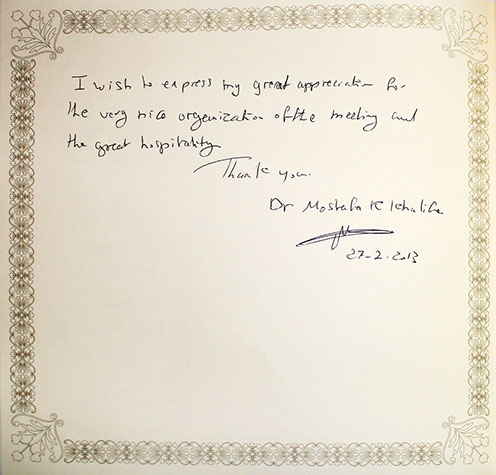 I wish to express my great appreciation for
the very nice organization of the meeting and
the great hospitality
Thank you.
Dr Mostafa K Khalifa
27-2-2013